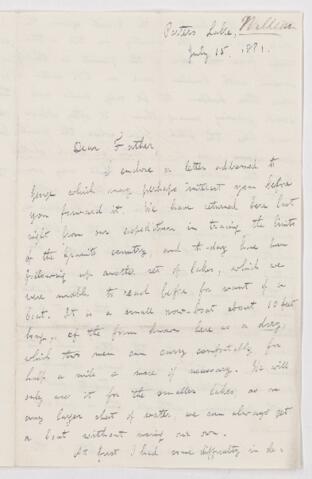 Porters Lake, William
July 15. 1871.
Dear Father,
I enclose a letter addressed to
George which may perhaps interest you before
you forward it. We have returned here last
night from our expedition in tracing the limits
of the granite country, and to-day have been
following up another set of lakes, which we
were unable to reach before for want of a
boat. It is a small row-boat about 10 feet
long, of the form known here as a
which two men can carry comfortably for
half a mile or more if necessary. We will
only use it for the smaller lakes, as on
any larger sheet of water, we can always get
a boat without using our own.
At first I had some difficulty in de-